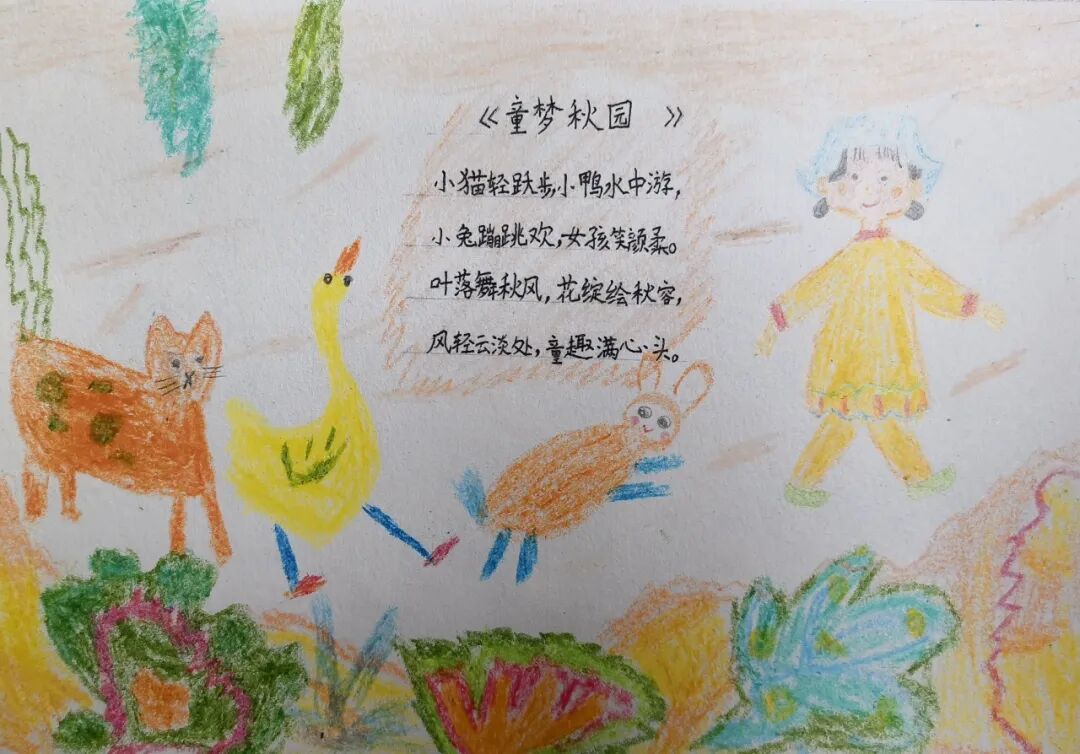 《童梦秋园 》
小猫轻趺步,小鸭水中游,
小兔蹦跳欢,女孩笑颜柔。
叶落舞秋风,花绽绘秋容,
风轻云淡处,童趣满心头。